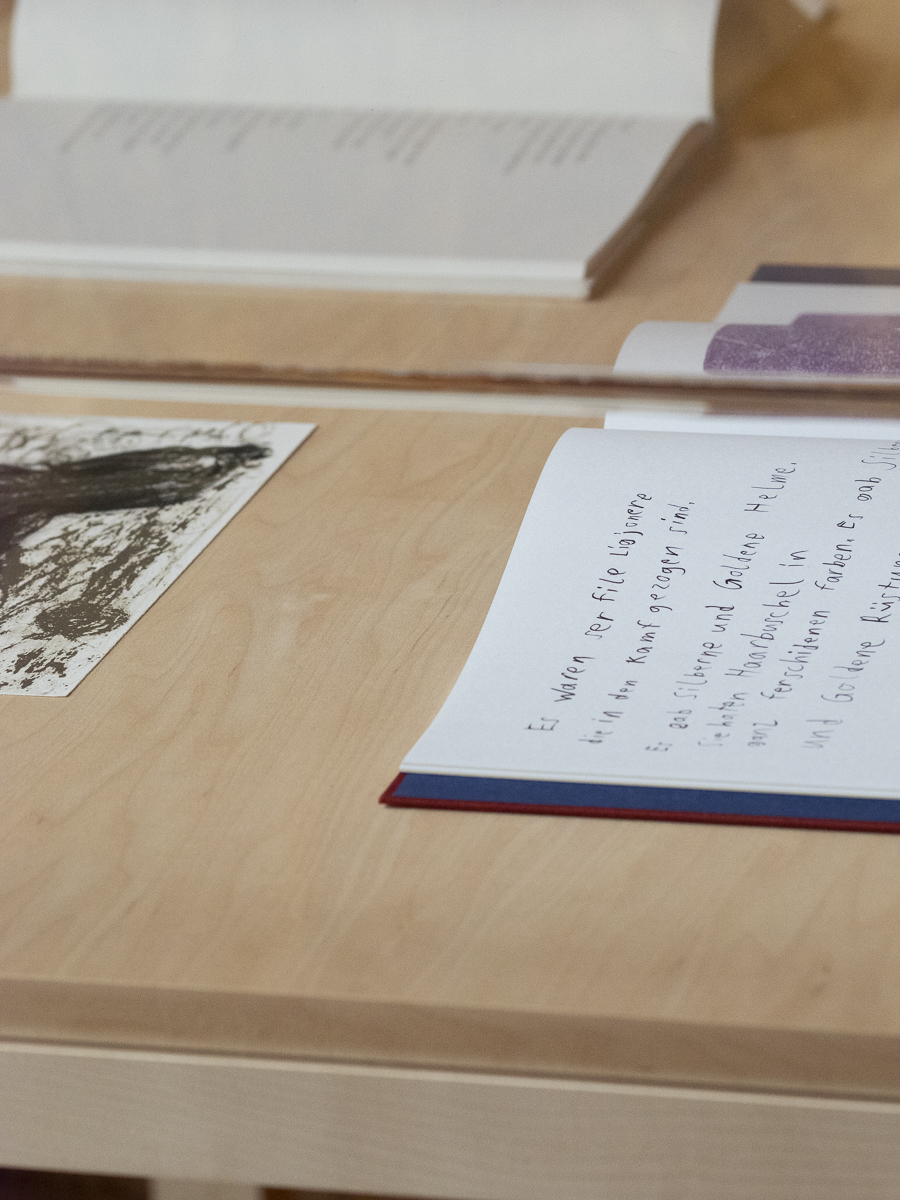 Es waren ser file Ligjonere
die in den Kamf gezogen sind.
Es gab Silberne und Goldene Helme.
Sie haten Haarbuschel in
ganz ferschidenen farben. Es gab Silb
und Goldene Rüstung